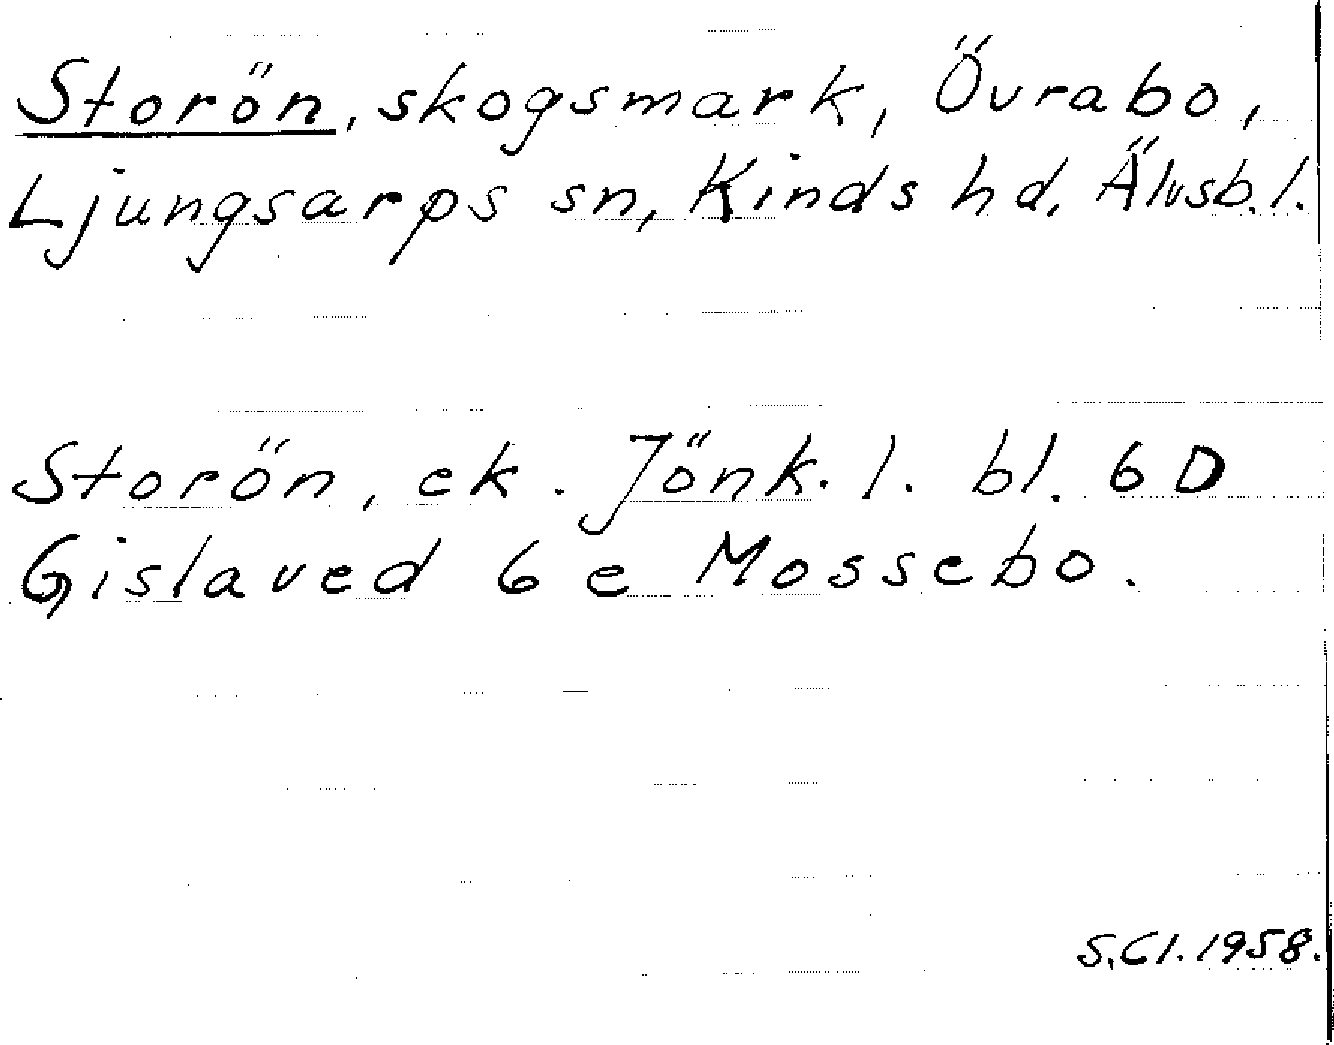 Storön, skogsmark, Övrabo,
Ljungsarps sn, Kinds hd, Älvsb. l.
Storön, ek. Jönk. l. bl. 6 D
Gislaved 6 e Mossebo.
S. Cl. 1958.